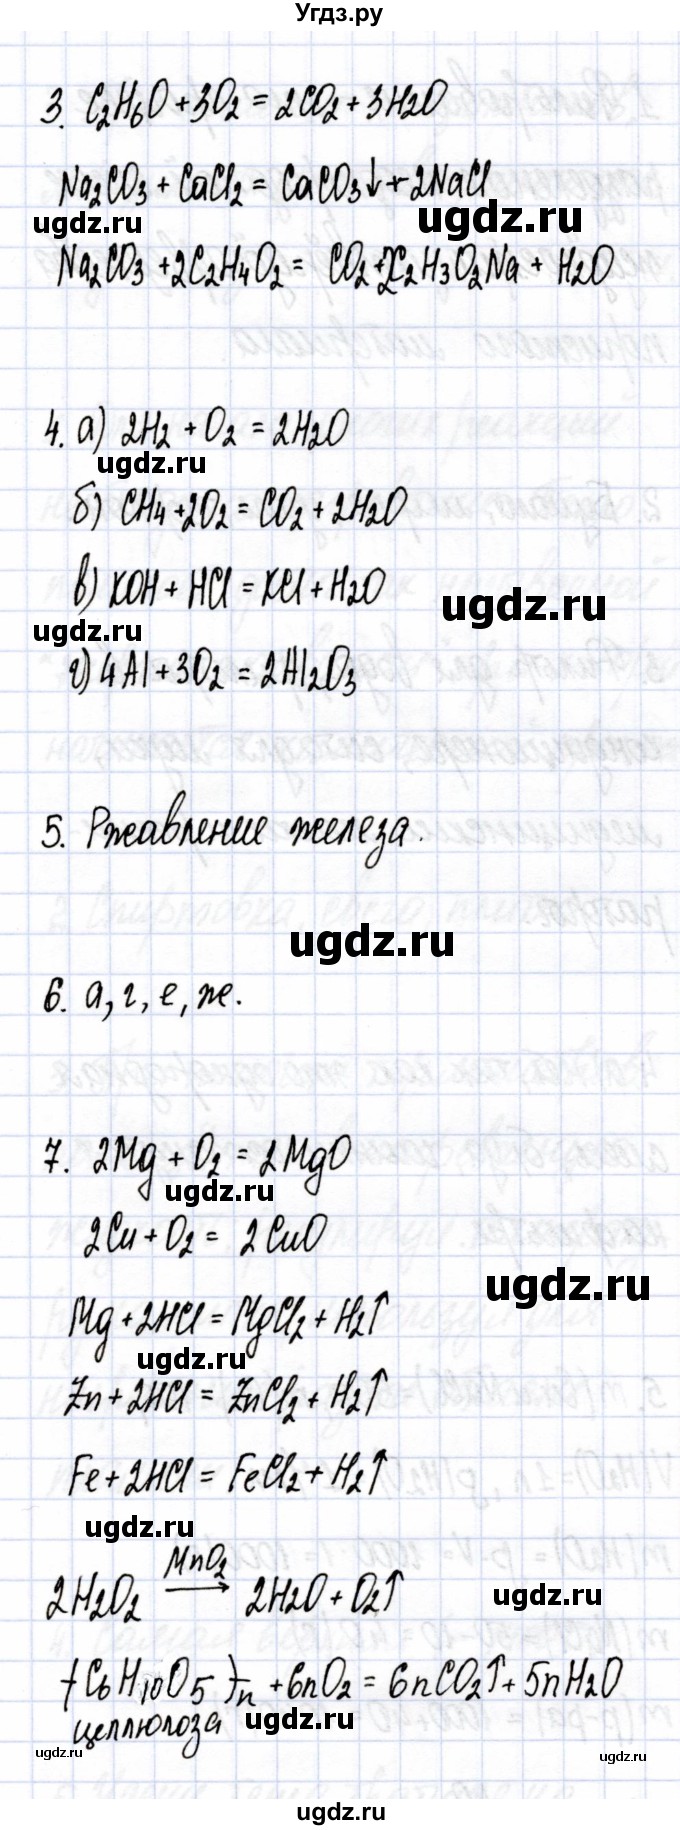 Угдз.ру
3. C₂H₆O + 3O₂ = 2CO₂ + 3H₂O
Na₂CO₃ + CaCl₂ = CaCO₃↓ + 2NaCl
ugdz.ru
ugdz.ru
Na₂CO₃ + 2C₂H₄O₂ = CO₂ + 2C₂H₃O₂Na + H₂O
4. а) 2H₂ + O₂ = 2H₂O
ugdz.ru
б) CH₄ + 2O₂ = CO₂ + 2H₂O
в) KOH + HCl = KCl + H₂O
ugdz.ru
ugdz.ru
г) 4Al + 3O₂ = 2Al₂O₃
5. Ржавление железа.
ugdz.ru
6. а, г, е, ж.
7. 2Mg + O₂ = 2MgO
ugdz.ru
2Cu + O₂ = 2CuO
ugdz.ru
Mg + 2HCl = MgCl₂ + H₂↑
ugdz.ru
Zn + 2HCl = ZnCl₂ + H₂↑
Fe + 2HCl = FeCl₂ + H₂↑
ugdz.ru
MnO₂
2H₂O₂ → 2H₂O + O₂↑
ugdz.ru
-(C₆H₁₀O₅)-n + 6nO₂ = 6nCO₂↑ + 5nH₂O
целлюлоза
ugdz.ru
ugdz.ru
ugdz.ru
ugdz.ru